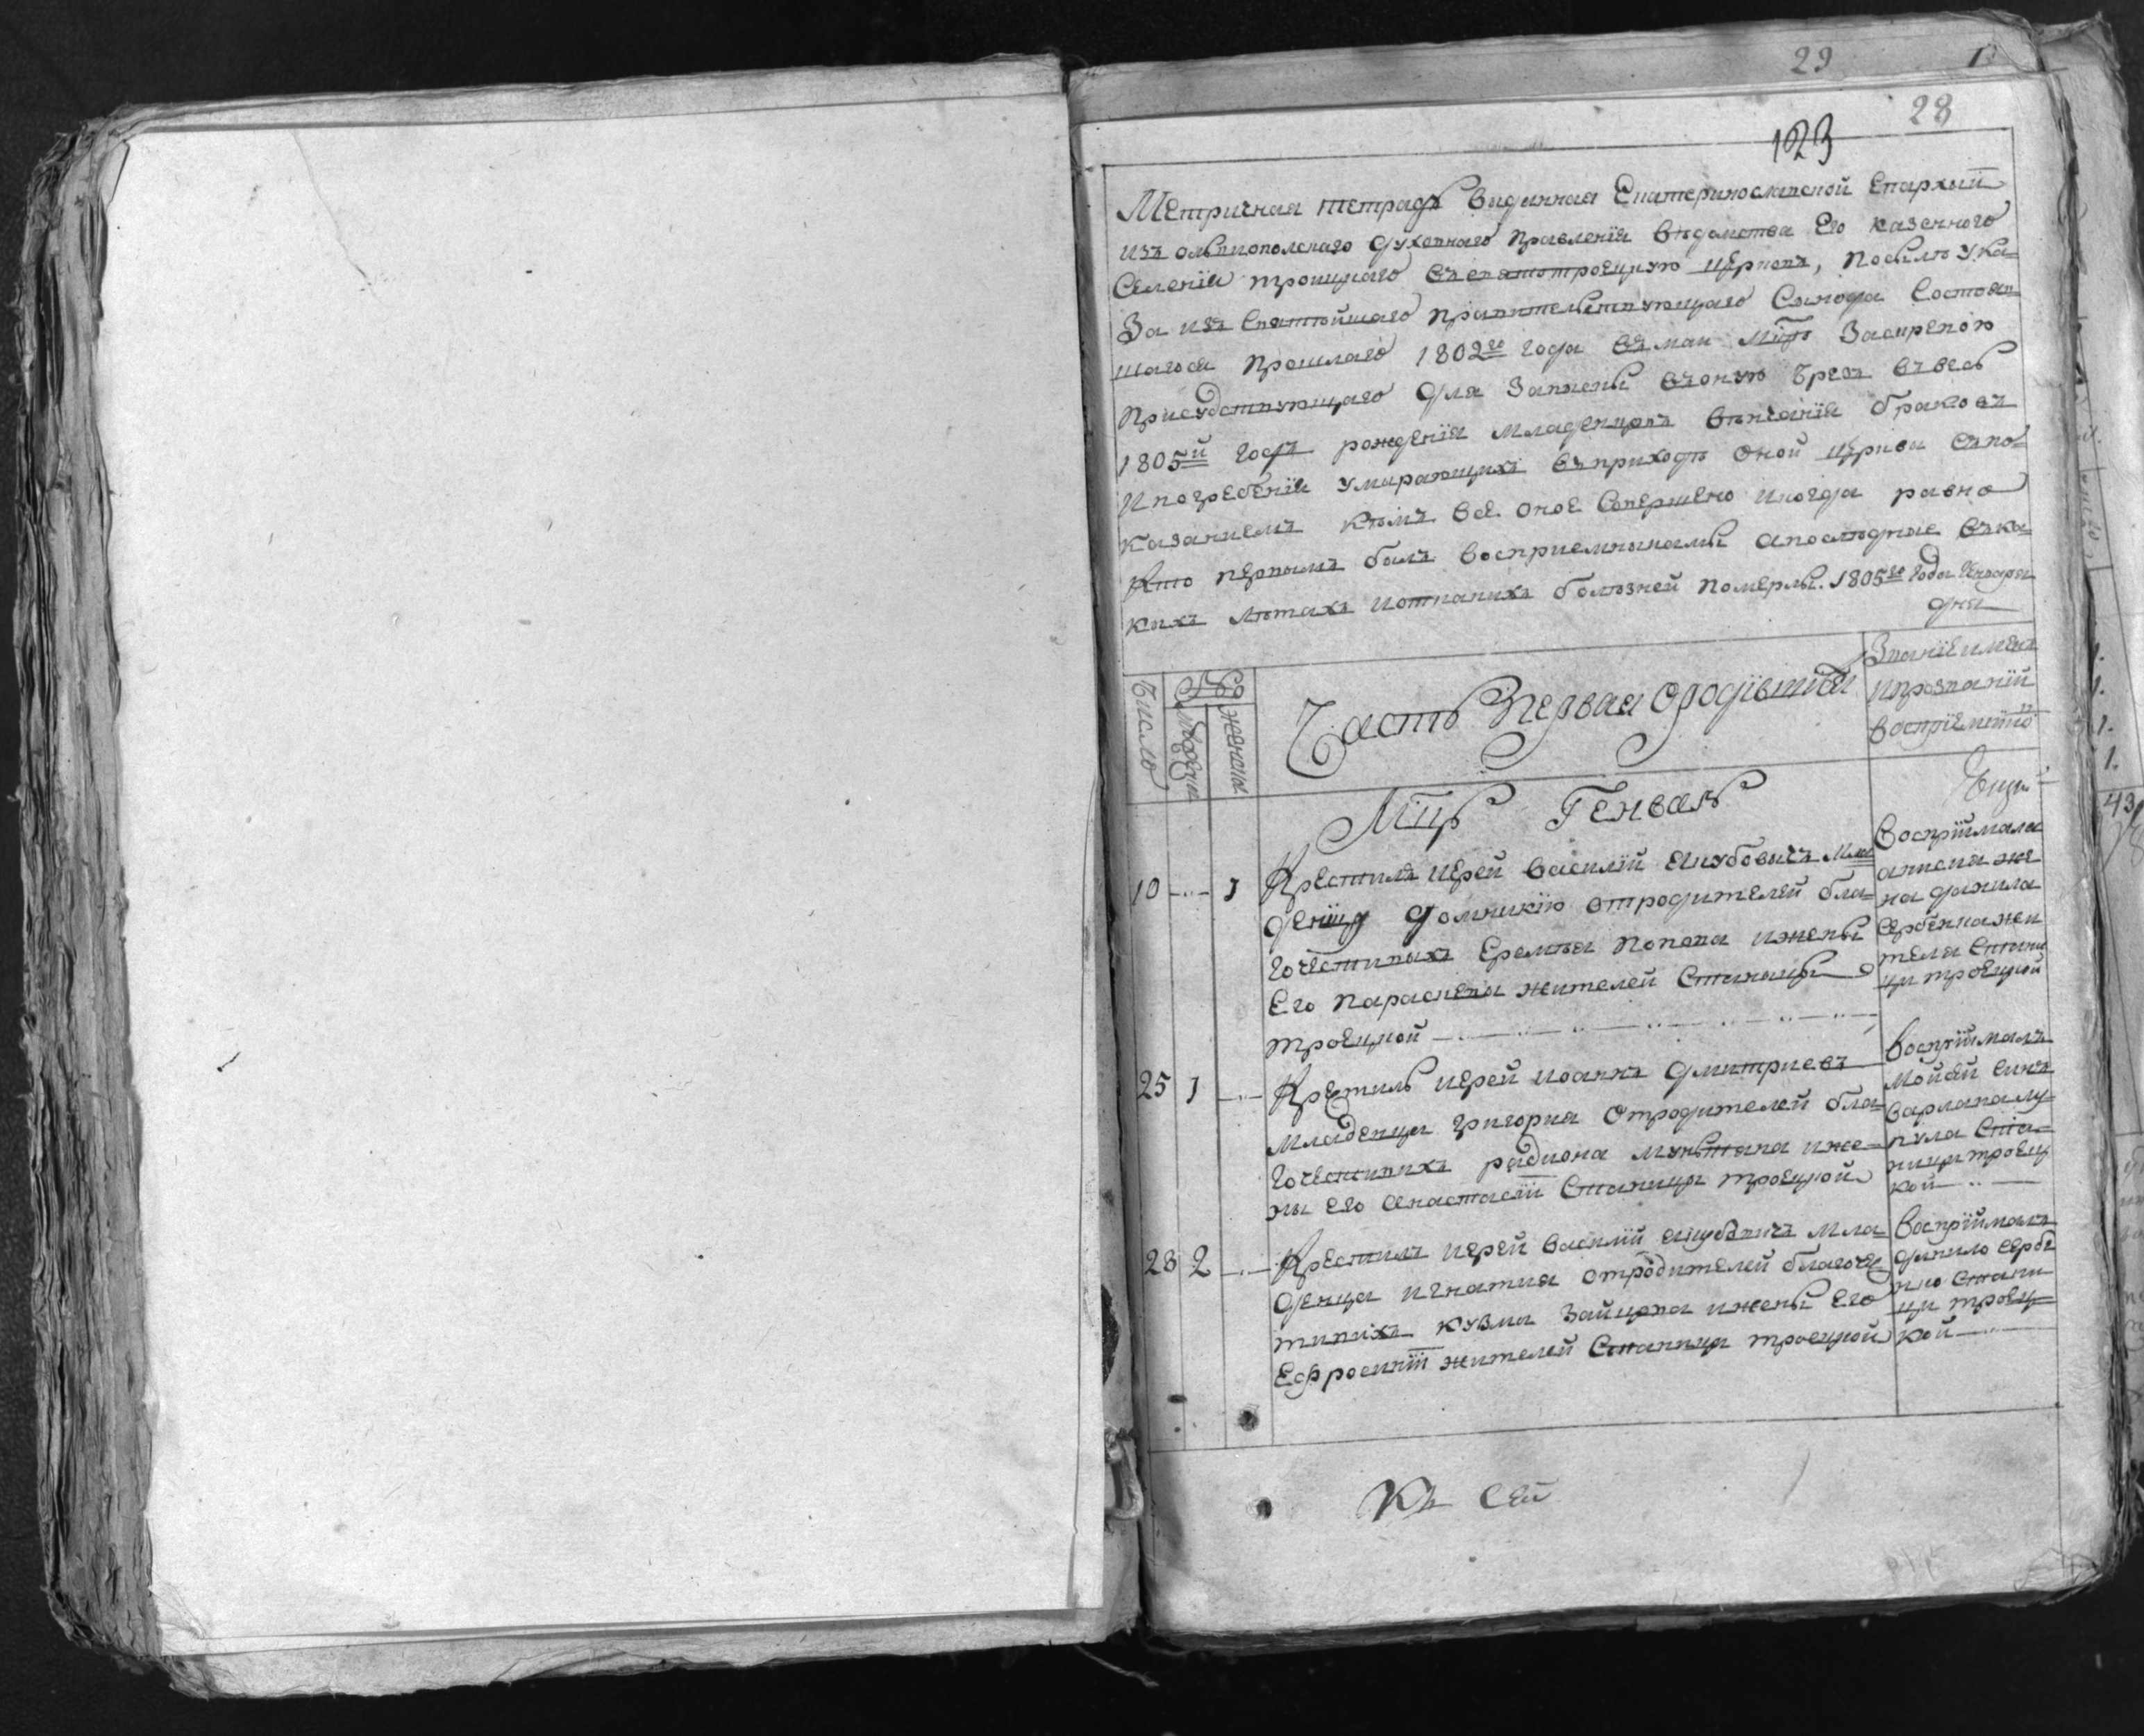 29 1
28
123
Метричная тетрадь виданная Екатеринославской Епархий
изъ ольвиополскаго духовнаго правленія вѣдомства Его казенного
Селенія троицкаго въ святотроецкую церковь, посилѣ ука=
за изъ святѣйшаго правителствующаго Синода состояв=
шагося прошлаго 1802го года въ маи мцѣ заскрепою
присудствующаго для записки въ оную чрезъ въ весь
1805й годъ рожденія младенцовъ вѣнчанія браковъ
и погребенія умирающихъ въ приходѣ оной церкви съ по=
казаниемъ кѣмъ все оное совершено и когда равно
кто первымъ былъ восприемникамы а последние въ ка=
кихъ лѣтахъ и от каких болѣзней померлы. 1805го года Января
дня
Число
мужеска
женска
Часть Первая о родившихся
Званіе имена
и прозваній
воспріемниковъ
Мцъ Генварь
10 --- 1
Крестилъ иерей василий Якубовичъ мла
денцу домникию от родителей бла=
гочестивыхъ Еремѣя попова и жены
Его параскевы жителей Станицы
троецкой
воспрiймала
жe
на данила
Сербенка жи
теля стани
ци троецкой
25 1 ---
Крестилъ иерей иоаннъ дмитриевъ
младенца григория от родителей бла=
гочестивихъ радиона и же=
ны его Анастасии Станици троецкой
воспрiймалъ
мойсей синъ
варлама лу=
пула ста=
ници троец
кой
28 2 ---
Крестилъ иерей василий якубовичъ мла
денца игнатия от родителей благочес
тивихъ кузми зайцова и жены его
Ефросинии жителей Станици троецкой
воспрiймалъ
данило сербе
нко стани
ци троец=
кой
Къ сей
43